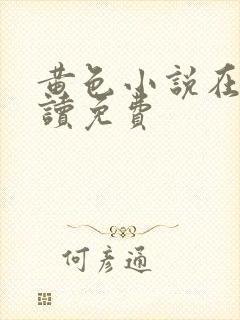 黃色小說在
讀免費
何彥通